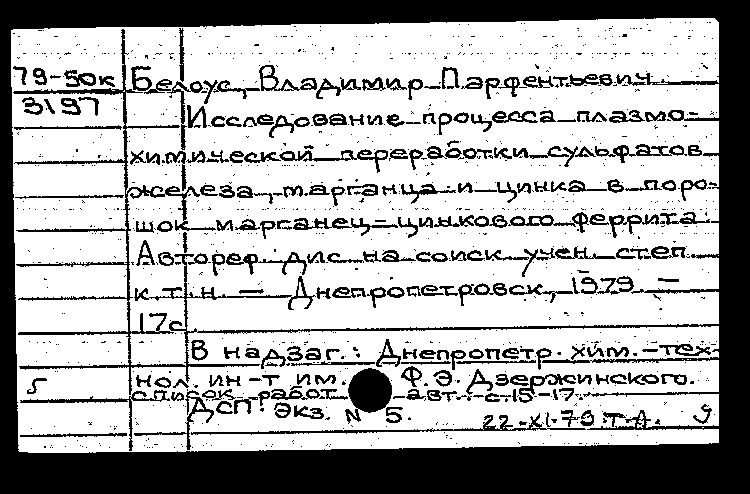 79-50к Белоус, Владимир Парфентьевич
3197 Исследование процесса плазмо-
химической переработки сульфатов
железа, марганца и цинка в поро-
шок марганец-цинкового феррита
Автореф дис на соиск учен. степ
к.т.н. — Днепропетровск, 1979 —
17с.
В надзаг.: Днепропетр. хим.-тех-
5 нол. ин-т им. Ф.Э. Дзержинского.
список работ авт.: с.15-17.
ДСП. Экз. N 5.
22-XI-79 Т.А. 9